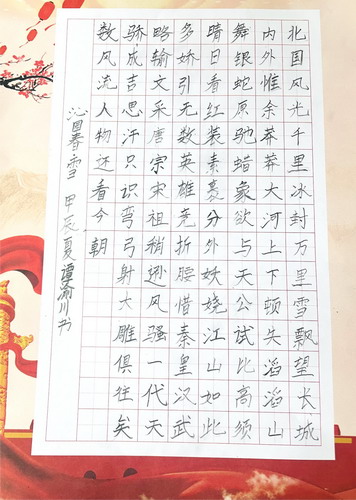 北国风光千里冰封万里雪飘望长城
内外惟余莽莽大河上下顿失滔滔山
舞银蛇原驰蜡象欲与天公试比高须
晴日看红装素裹分外妖娆江山如此
多娇引无数英雄竞折腰惜秦皇汉武
略输文采唐宗宋祖稍逊风骚一代天
骄成吉思汗只识弯弓射大雕俱往矣
数风流人物还看今朝
沁园春雪 甲辰夏谭渝川书